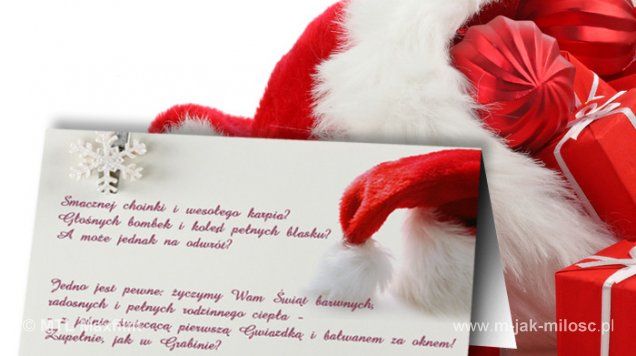 Smacznej choinki i wesołego karpia?
Głośnych bombek i kolęd pełnych blasku?
A może jednak na odwrót?
Jedno jest pewne: życzymy Wam Świąt barwnych,
radosnych i pełnych rodzinnego ciepła -
świecącą pierwszą Gwiazdką i bałwanem za oknem!
Zupełnie, jak w Grabinie?
© MTL Maxfilm
www.m-jak-milosc.pl